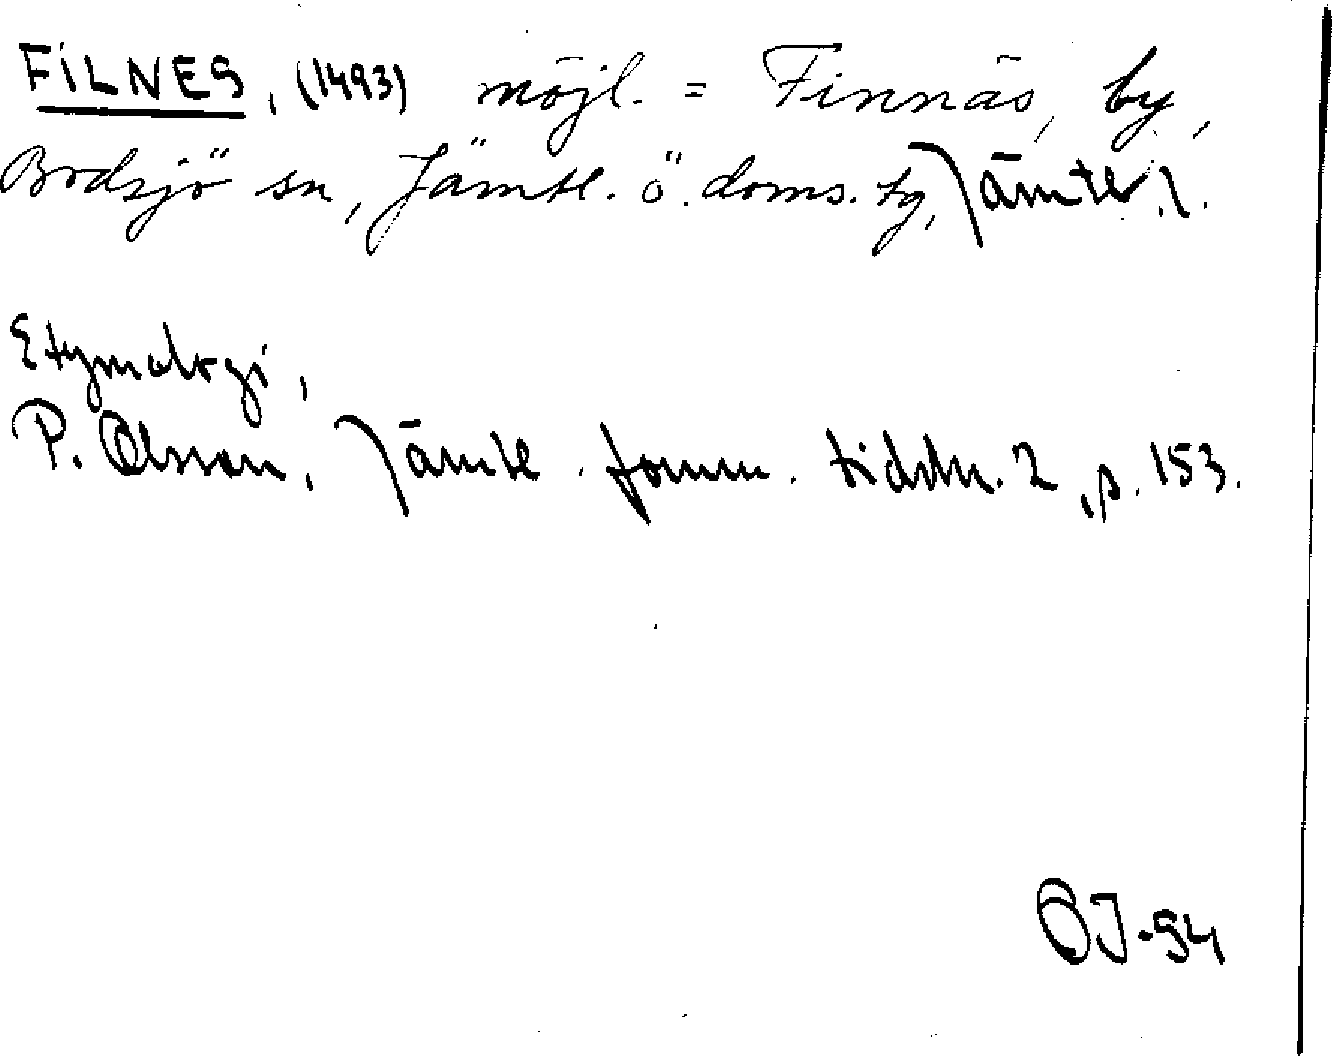 FILNES, (1493) möjl. = Finnäs, by,
Bodsjö sn, Jämtl. ö. doms. tg, Jämtl. l.
Etymologi,
P. Olsson, Jämtl. fornm. tidskr. 2, p. 153.
ÖJ-54